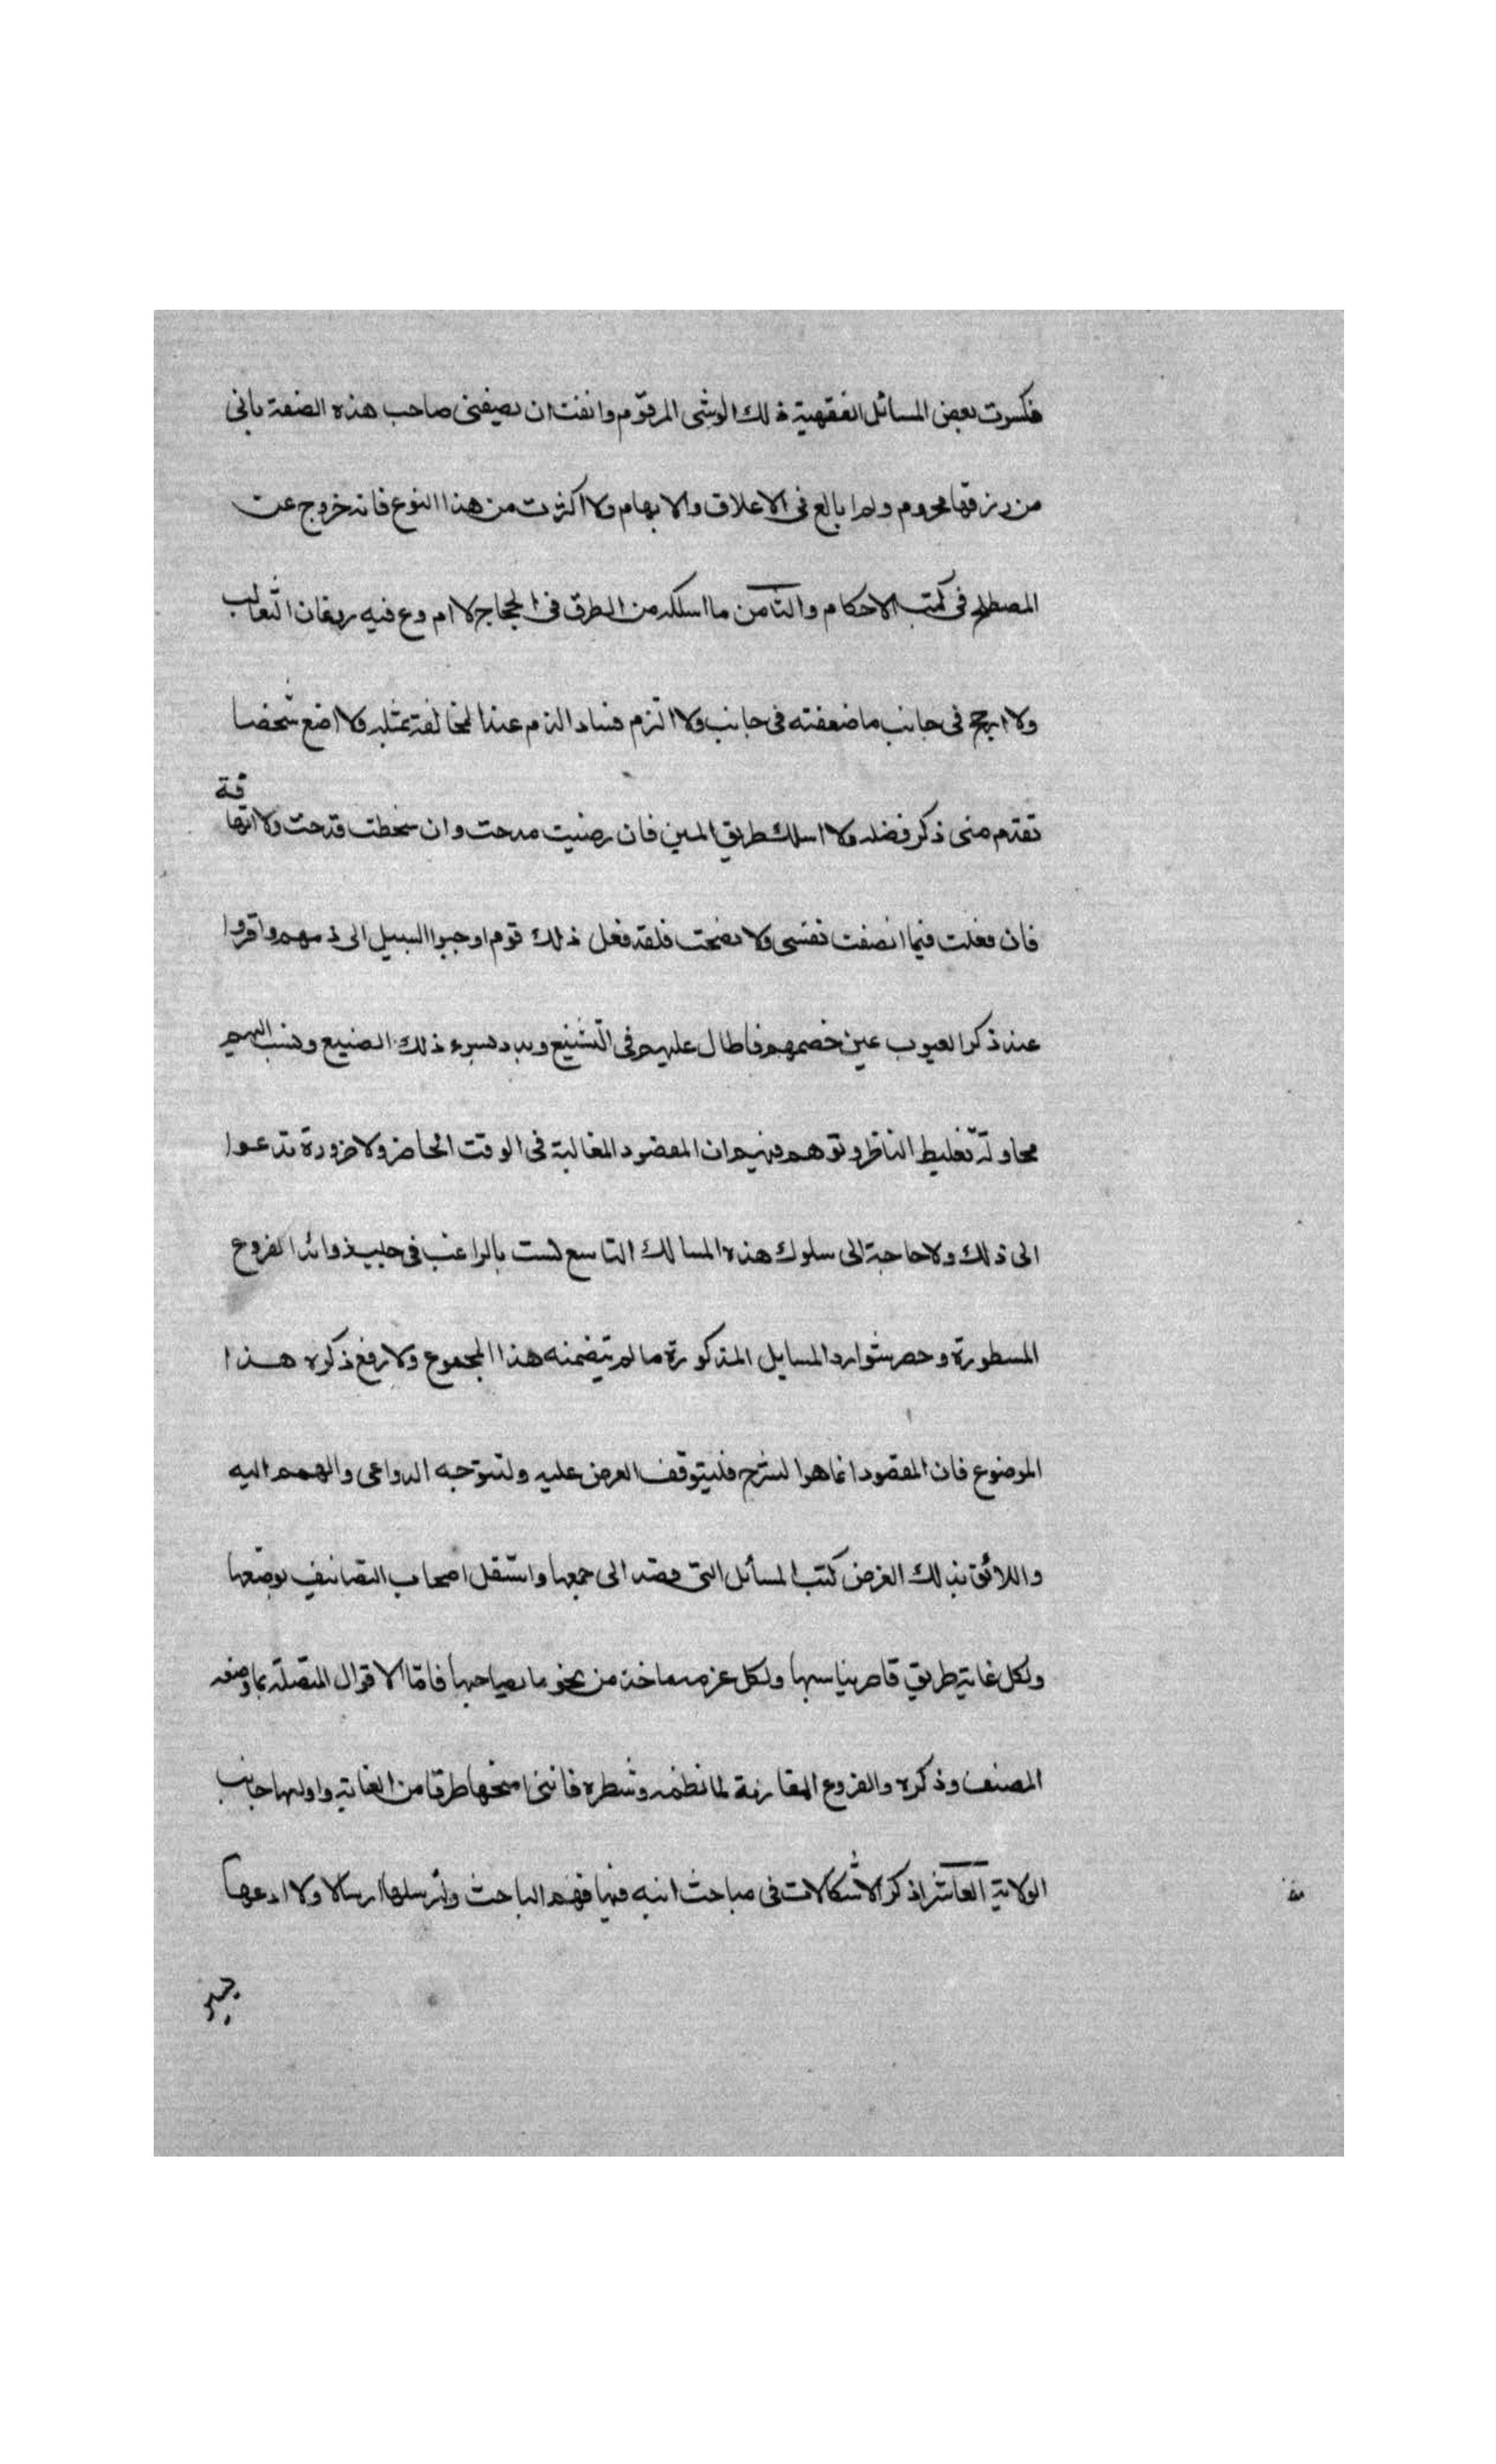 فكسوت بعض المسائل الفقهية ذلك الوشى المرقوم وانفت ان يصيفنى صاحب هذه الصنعة بانى
من رزقها محروم ولم ابالغ فى الاغلاق والابهام ولا اكثرت من هذا النوع فانه خروج عن
المصطلح فى كتب الاحكام والثامن ما اسلكه من الطرق فى الحجاج لا اروغ فيه روغان الثعالب
ولا ارجح فى جانب ما ضعفته فى جانب ولا التزم فساد الزم عند المخالفة بمثله ولا اضع شخصا
تقدم منى ذكر فضله ولا اسلك طريق المين فان رضيت مدحت وان سخطت قدحت ولا اتهافة
فان فعلت فيما انصفت نفسى ولا نصحت فلقد فعل ذلك قوم اوجبوا السبيل الى ذمهم واقروا
عند ذكر العيوب عين خصمهم فاطال عليهم فى التشنيع وبدد بسوء ذلك الصنيع ونسب اليهم
محاولة تغليط الناظر وتوهم فيهم ان المقصود المغالبة فى الوقت الحاضر ولا ضرورة تدعوا
الى ذلك ولا حاجة الى سلوك هذه المسالك التاسع لست بالراغب فى جلب زوائد الفروع
المسطورة وحصر شوارد المسايل المذكورة ما لم يتضمنه هذا المجموع ولا رفع ذكره هذا
الموضوع فان المقصود انما هوا لشرح فليتوقف الغرض عليه ولتتوجه الدواعى والهمم اليه
واللائق بذلك الغرض كتب المسائل التى قصد الى جمعها واستقل اصحاب التصانيف بوضعها
ولكل غاية طريق قاصد يناسبها ولكل عزمه ماخذ من نحو ما يصاحبها فامّا الاقوال المتصلة بما وضعه
المصنف وذكره والفروع المقاربة لما نظمه وشطره فاننى امنحها طرقا من العناية واوليها جانب
الولاية العاشر اذكر الاشكالات فى مباحث انبه فيها فهم الباحث ولم ارسلها ارسالا ولا ادعها